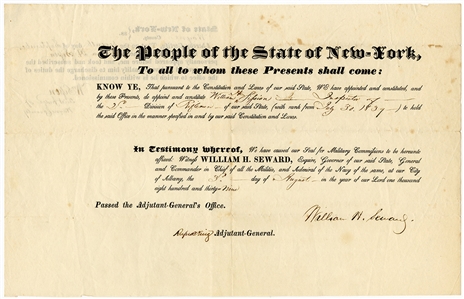 The People of the State of New-York,
To all to whom these Presents shall come:
KNOW YE, That pursuant to the Constitution and Laws of our said State, WE have appointed and constituted, and
by these Presents, do appoint and constitute William Inspector of
the Division of Riflemen of our said State, (with rank from July 30, 1839) to hold
the said Office in the manner specified in and by our said Constitution and Laws.
In Testimony whereof, We have caused our Seal for Military Commissions to be hereunto
affixed: Witness WILLIAM H. SEWARD, Esquire, Governor of our said State, General
and Commander in Chief of all the Militia, and Admiral of the Navy of the same, at our City
of Albany, the day of August in the year of our Lord one thousand
eight hundred and thirty-Nine
Passed the Adjutant-General's Office.
William H. Seward
Adjutant-General.